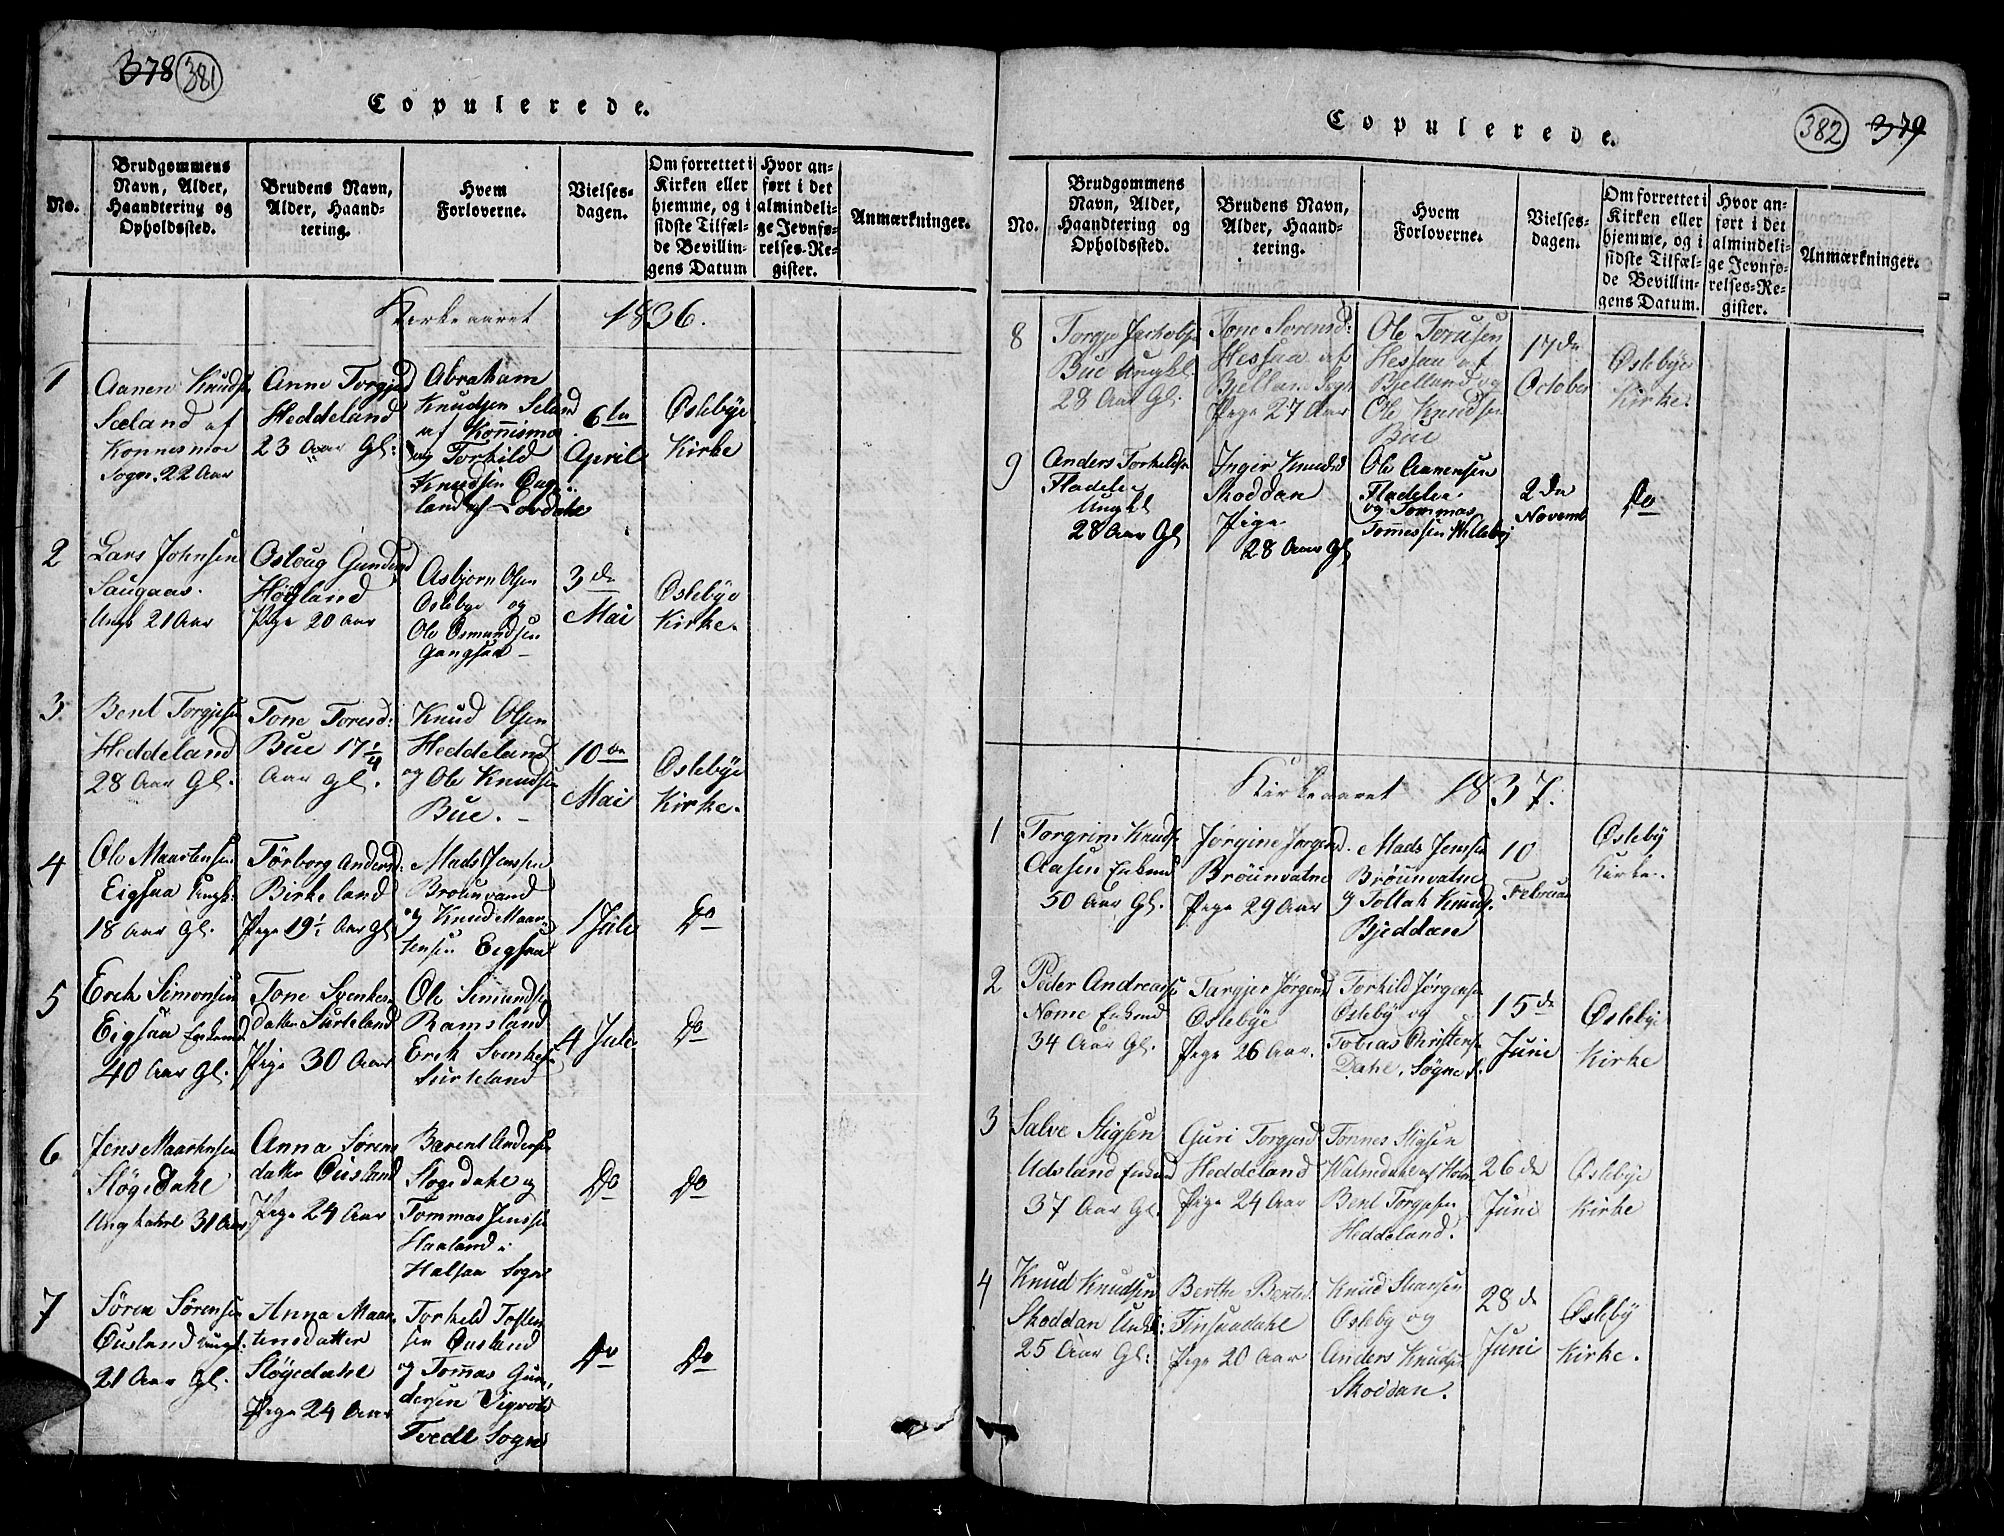 378 381
Copulerede.
No.
Brudgommens
Navn, Alder,
Haandtering og
Opholdssted.
Brudens Navn,
Alder, Haand-
tering.
Hvem
Forloverne.
Vielses-
dagen.
Om forrettet i
Kirken eller
hjemme, og i
sidste Tilfæl-
de Bevillin-
gens Datum
Hvor an-
ført i det
almindeli-
ge Jevnfø-
relses-Re-
gister.
Anmærkninger.
Kirkeaaret 1836.
1
Aanen Knuds
Seeland af
Konnesmoe
Sogn. 22 Aar
Anne Torgjed
Heddeland
23 Aar Gl:
Abraham
Knudsen Seland
af Konnismo
og Torkild
Knudsen
land af
6te
April
Oslebye
Kirke
2
Lars Johnsen
Saugaas.
Ungk 21 Aar
Osloug Gunders
Høgland
Pige 20 Aar
Asbjorn Olsen
Oslebye og
Ole Osmundsen
Gangsaa
3de
Mai
Oslebye
Kirke.
3
Bent Torgjesen
Heddeland
28 Aar Gl.
Tone Toresd:
Bue 17 1/4
Aar gl.
Knud Olsen
Heddeland
og Ole Knudsen
Bue.
10de
Mai
Oslebye
Kirke.
4
Ole Maartensen
Eigsaa Ungk.
18 Aar Gl.
Törborg Anders:
Birkeland
Pige 19 1/2 Aar Gl
Mads Jenssen
Brounvand
og Knud Maar
tensen Eigsaa
1 Jule
Do
5
Erek Simonsen
Eigsaa Enkemd
40 Aar Gl.
Tone Svenkes
datter Surteland
Pige 30 Aar
Ole Simundsen
Ramsland
Erek Svenkesen
Surteland
4 Jule
Do
6
Jens Maartensen
Støgedahl
Ungkahrl 31 Aar
Anna Sørens
datter Øusland
Pige 24 Aar
Barent Andersen
Støgedahl og
Tommas Jenssen
Haaland i
Halsaa Sogn
Do
Do
7
Søren Sørensen
Øusland ungk.
21 Aar Gl.
Anna Maar
tensdatter
Støgedahl
Pige 24 Aar
Torkeld Tosten
sen Øusland
og Tommas Gun
dersen
Tvedt Sogn
Do
Do
382 379
Copulerede.
No.
Brudgommens
Navn, Alder,
Haandtering og
Opholdssted.
Brudens Navn,
Alder, Haand-
tering.
Hvem
Forloverne.
Vielses-
dagen.
Om forrettet i
Kirken eller
hjemme, og i
sidste Tilfæl-
de Bevillin-
gens Datum.
Hvor an-
ført i det
almindeli-
ge Jevnfø-
relses-Re-
gister.
Anmærkninger.
8
Torgje Jachobs
Bue Ungkl.
28 Aar Gl.
Tone Sorensd:
Hessaa af
Bjelland Sogn
Pige 27 Aar
Ole Torusen
Hessaa af
Bjelland og
Ole Knudsen
Bue
17de
October
Oslebye
Kirke.
9
Anders Torkeldsen
Fladeler
Ungkl
28 Aar Gl
Inger Knudsd
Skoddan
Pige
28 Aar Gl
Ole Aanensen
Fladeler
og Tommas
Tommessen Willeby
2de
Novemb
Do
Kirkeaaret 1837.
1
Torgrim Knuds
Aasen Enkmd
50 Aar Gl.
Jorgine Jorgensd.
Bröunvatne
Pige 29 Aar
Mads Jensen
Bröunvatne
og Tollak Knuds.
Bjeddan
10
Februar
Osleby
Kirke.
2
Peder Andreass
Nome Enkmd
34 Aar Gl.
Targjer Jörgensd
Oslebye
Pige 26 Aar.
Torkild Jörgensen
Osleby og
Tobias Christensen
Dahl, Søgne S.
15de
Juni
Oslebye
Kirke
3
Salve Stigsen
Udsland Enkmd
37 Aar Gl.
Guri Torgjersd
Heddeland
Pige 24 Aar
Tonnes Stigsen
Walmdahl af Holm
Bent Torgjesen
Heddeland.
26de
Jüni
Oslebye
Kirke
4
Knud Knudsen
Skoddan Unkl:
25 Aar Gl:
Berthe Bentsd.
Finsaadahl
Pige 20 Aar
Knud Stansen
Osleby og
Anders Knudsen
Skoddan.
28de
Juni
Osleby
Kirke.